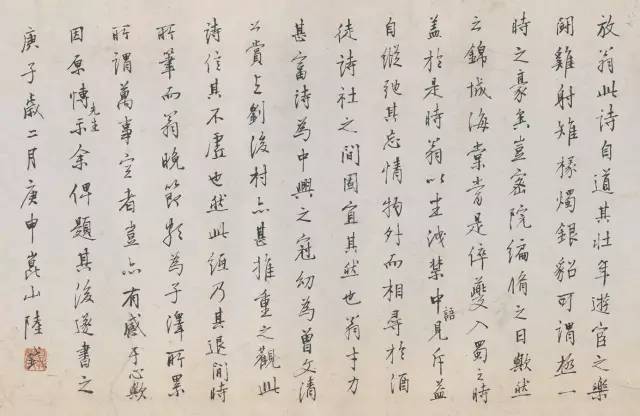 放翁此詩自道其壯年遊官之樂
鬪雞射雉椽燭銀貂可謂極一
時之豪矣豈密院編脩之日歟然
云錦城海棠當是倅夔入蜀之時
蓋於是時翁以坐洩禁中語見斥益
自縱弛其忘情物外而相尋於酒
徒詩社之間固宜其然也翁才力
甚富詩為中興之冠幼為曾文清
公賞與劉後村亦甚推重之觀此
詩信其不虛也然此紙乃其退閒時
所筆而翁晚節頗為子澤所累
所謂萬事定者豈亦有感于心歟
因原博先生示余俾題其後遂書之
庚子歲二月庚申崑山陸